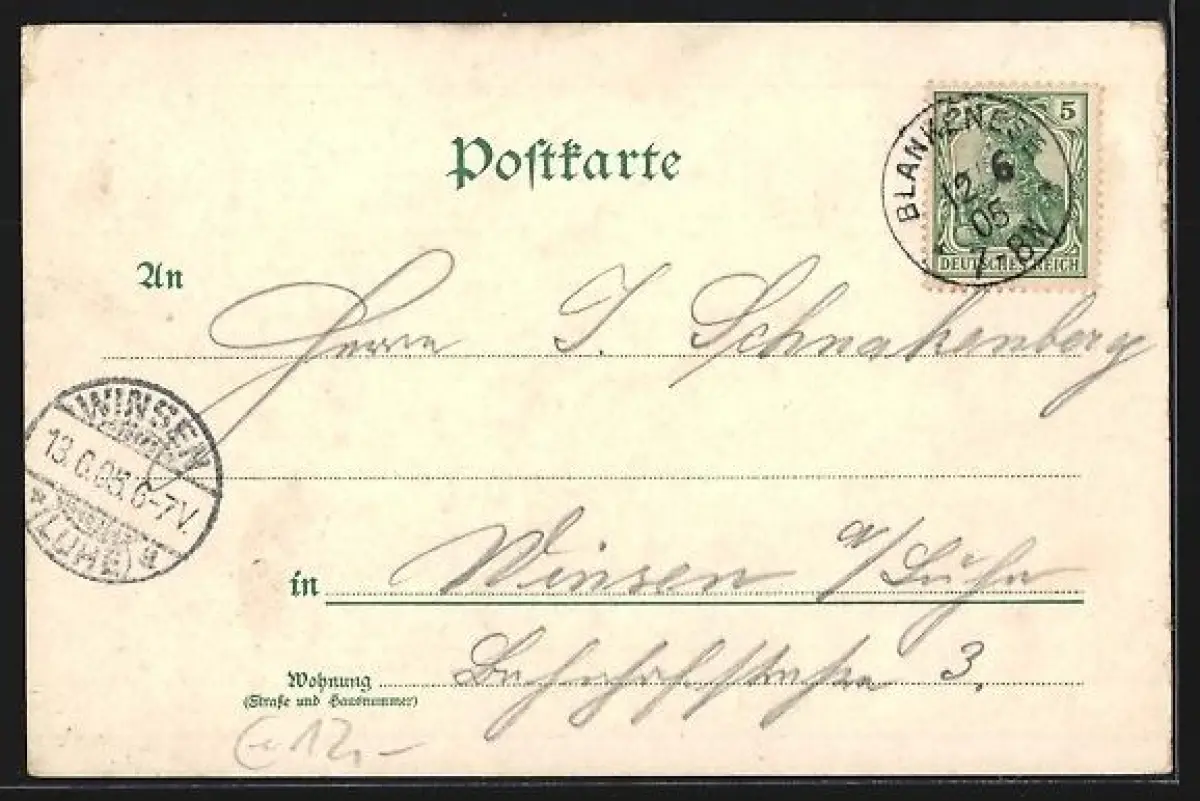 Postkarte
5
BLANKENESE
12 6
05
7-8N
DEUTSCHES REICH
An
Herrn J. Schnakenberg
WINSEN
13.6.05.6-7V.
(LUHE)
in Winsen a/Luhe
Wohnung Bahnhofstraße 3.
(Straße und Hausnummer)
12,-